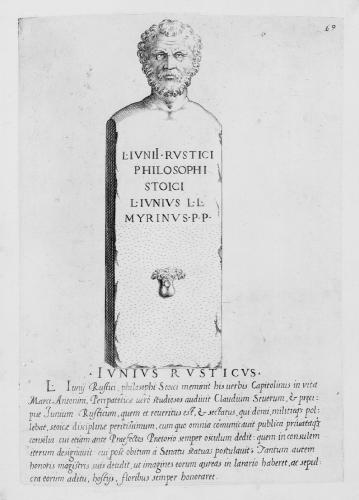 69
L·IVNII·RVSTICI
PHILOSOPHI
STOICI
L·IVNIVS L·L
MYRINVS·P·P·
·IVNIVS RVSTICVS·
L. Iunij Rustici, philosophi Stoici meminit his uerbis Capitolinus in uita
Marci Antonini, Peripateticae uerò studiosos audiuit Claudium Seuerum, & preci-
pue Iunium Rusticum, quem et reueritus est, & sectatus, qui domi, militiaeque pol-
lebat, stoice discipline peritissimum, cum quo omnia comunicauit publica priuataque
consilia cui etiam ante Praefectos Pretorio semper osculum dedit: quem in consulem
iterum designauit cui post obitum à Senatu statuas postulauit: Tantum autem
honoris magistris suis detulit, ut imagines eorum aureas in larario haberet, ac sepul-
cra eorum aditu, hostijs, floribus semper honoraret.